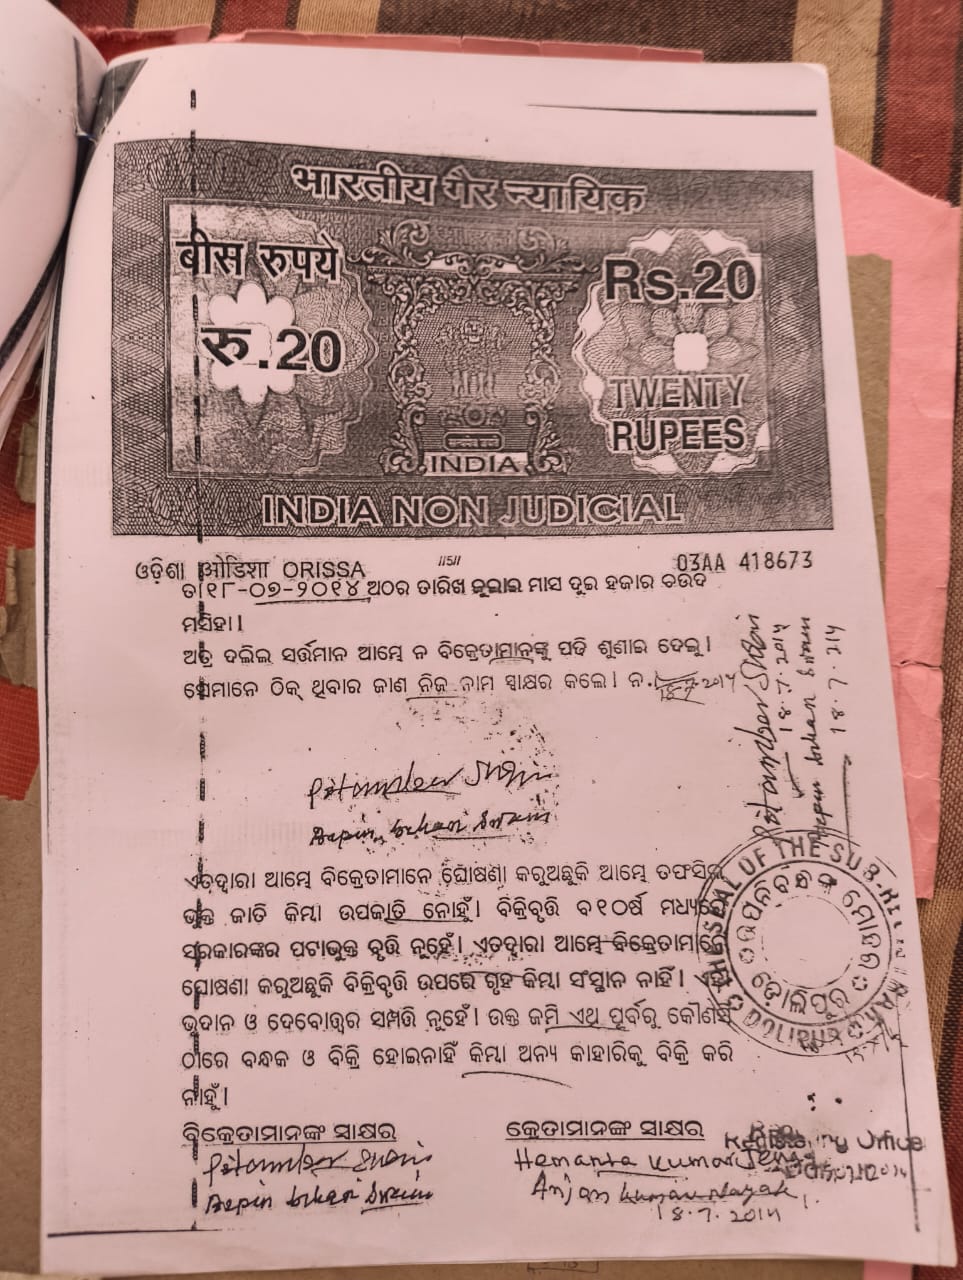 भारतीय गैर न्यायिक
बीस रुपये
रु.20
Rs.20
TWENTY
RUPEES
INDIA
INDIA NON JUDICIAL
ଓଡ଼ିଶା ओडिशा ORISSA
//5//
03AA 418673
ତା୧୮-୦୭-୨୦୧୪ ଅଠର ତାରିଖ ଜୁଲାଇ ମାସ ଦୁଇ ହଜାର ଚଉଦ
ମସିହା।
ଅତ୍ର ଦଲିଲ ସର୍ତ୍ତମାନ ଆମ୍ଭେ ନ ବିକ୍ରେତାମାନଙ୍କୁ ପଢି ଶୁଣାଇ ଦେଲୁ।
ସେମାନେ ଠିକ୍ ଥିବାର ଜାଣି ନିଜ ନାମ ସ୍ୱାକ୍ଷର କଲେ। ନ.
18.7.2014
Pitamber Swain
Bepin bihari Swain
Pitamber Swain
18.7.2014
Bepin bihari Swain
18.7.214
ଏତଦ୍ୱାରା ଆମ୍ଭେ ବିକ୍ରେତାମାନେ ଘୋଷଣା କରୁଅଛୁକି ଆମ୍ଭେ ତଫସିଲ
ଭୁକ୍ତ ଜାତି କିମ୍ବା ଉପଜାତି ନୋହୁଁ। ବିକ୍ରିବୃତ୍ତି ବ୧୦ର୍ଷ ମଧ୍ୟରେ
ସରକାରଙ୍କର ପଟାଭୁକ୍ତ ବୃତ୍ତି ନୁହେଁ। ଏତଦ୍ୱାରା ଆମ୍ଭେ ବିକ୍ରେତାମାନେ
ଘୋଷଣା କରୁଅଛୁକି ବିକ୍ରିବୃତ୍ତି ଉପରେ ଗୃହ କିମ୍ବା ସଂସ୍ଥାନ ନାହିଁ। ଏହା
ଭୂଦାନ ଓ ଦେବୋତ୍ତର ସମ୍ପତ୍ତି ନୁହେଁ। ଉକ୍ତ ଜମି ଏଥି ପୂର୍ବରୁ କୌଣସି
ଠାରେ ବନ୍ଧକ ଓ ବିକ୍ରି ହୋଇନାହିଁ କିମ୍ବା ଅନ୍ୟ କାହାରିକୁ ବିକ୍ରି କରି
ନାହୁଁ।
THE SEAL OF THE SUB-
ଉପନିବନ୍ଧକ ମୋହର
ଢୋଲିପୁର
ବିକ୍ରେତାମାନଙ୍କ ସାକ୍ଷର
Pitamber Swain
Bepin bihari Swain
କ୍ରେତାମାନଙ୍କ ସାକ୍ଷର
Hemanta Kumar Jena
Anjan Kumar Nayak
18.7.2014
Registering Officer